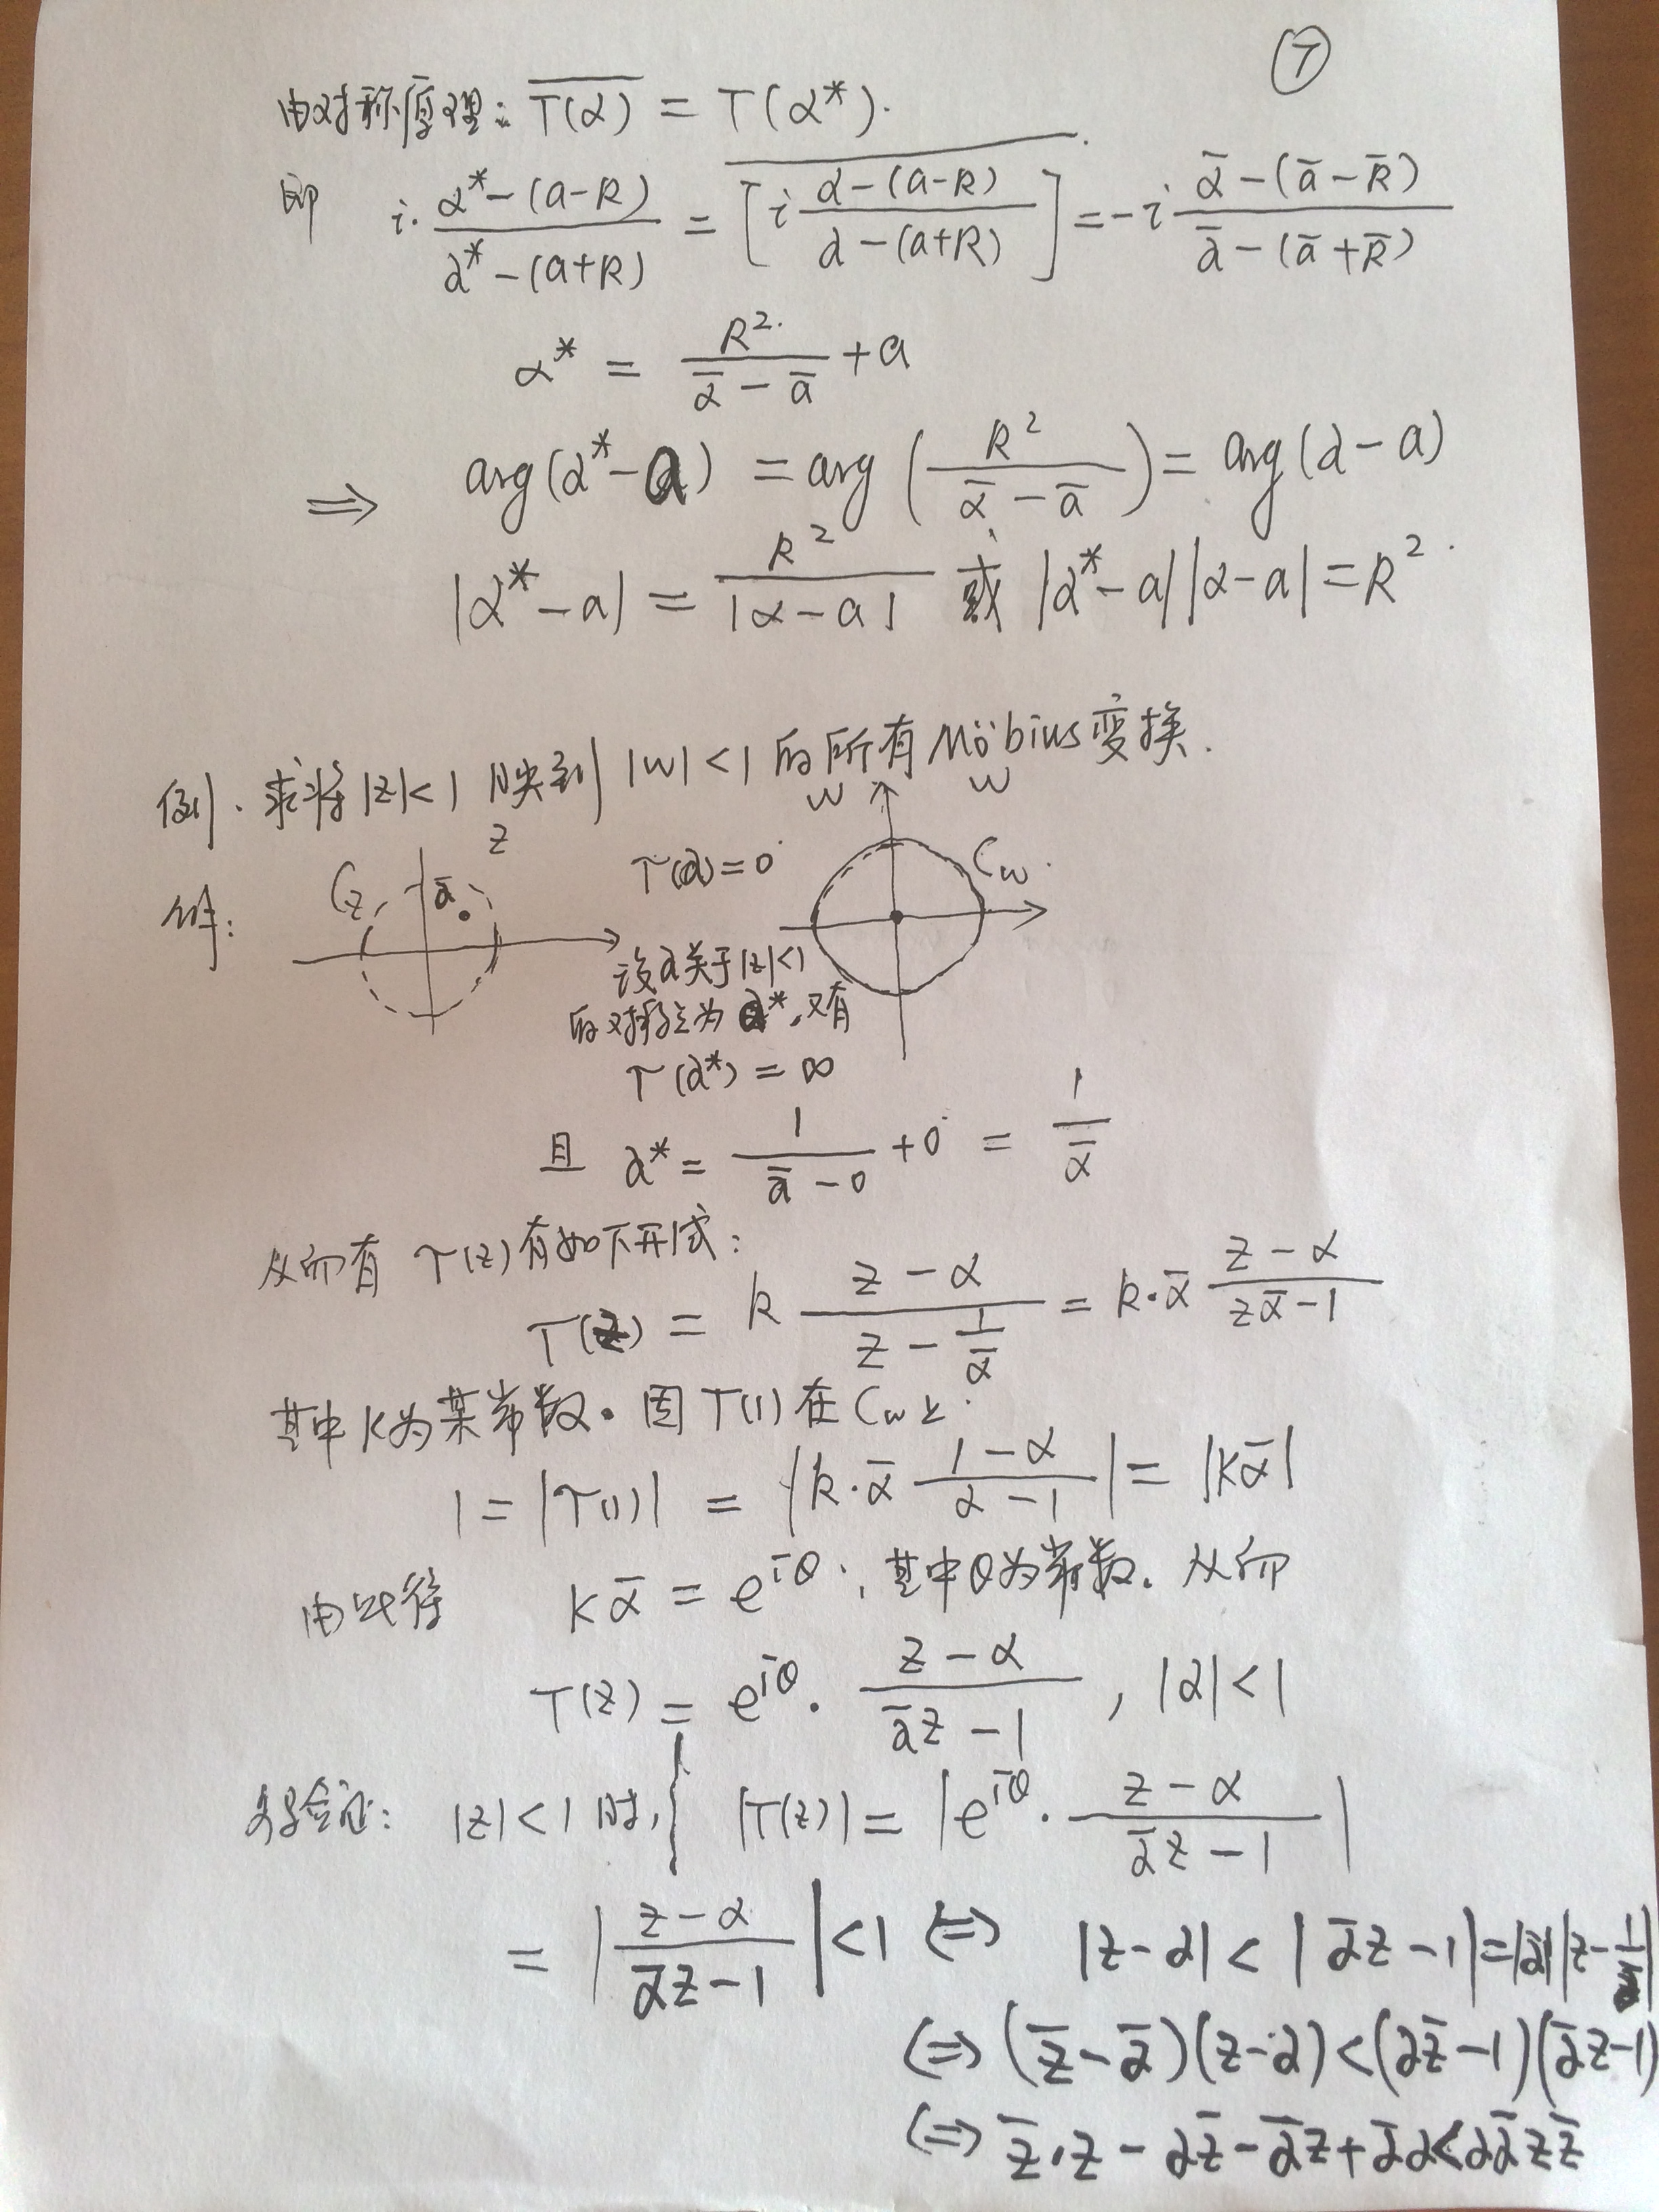 ⑦
由对称原理: \overline{T(α)} = T(α*).
即 i·\frac{α*-(a-R)}{α*-(a+R)} = \overline{[i\frac{α-(a-R)}{α-(a+R)}]} = -i\frac{\bar{α}-(\bar{a}-\bar{R})}{\bar{α}-(\bar{a}+\bar{R})}
α* = \frac{R^2}{\bar{α}-\bar{a}}+a
⇒ arg(α*-a) = arg(\frac{R^2}{\bar{α}-\bar{a}}) = arg(α-a)
|α*-a| = \frac{R^2}{|α-a|} 或 |α*-a||α-a| = R^2.
例. 求将|z|<1 映到 |w|<1 的所有Möbius变换.
解:
z
C_z
α
T(α)=0
w
w
C_w
设α关于|z|<1
的对称点为α*, 又有
T(α*) = ∞
且 α* = \frac{1}{\bar{α}-0}+0 = \frac{1}{\bar{α}}
从而有 T(z)有如下形式:
T(z) = k\frac{z-α}{z-\frac{1}{\bar{α}}} = k·\bar{α}\frac{z-α}{z\bar{α}-1}
其中k为某常数. 因T(1)在C_w上.
1 = |T(1)| = |k·\bar{α}\frac{1-α}{α-1}| = |k\bar{α}|
由此得 k\bar{α} = e^{iθ}, 其中θ为常数. 从而
T(z) = e^{iθ}·\frac{z-α}{\bar{α}z-1}, |α|<1
验证: |z|<1 时, |T(z)| = |e^{iθ}·\frac{z-α}{\bar{α}z-1}|
= |\frac{z-α}{\bar{α}z-1}|<1 ⇔ |z-α| < |\bar{α}z-1| = |\bar{α}||z-\frac{1}{}|
⇔ (\bar{z}-\bar{α})(z-α)<(α\bar{z}-1)(\bar{α}z-1)
⇔ \bar{z}·z-α\bar{z}-\bar{α}z+\bar{α}α<α\bar{α}z\bar{z}